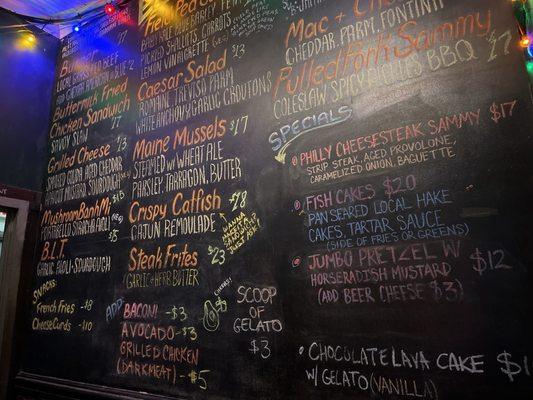 Buttermilk Fried
Chicken Sandwich
Savoy Slaw
Grilled Cheese
Aged Cheddar
Mushroom BanhMi
Portobello
B.L.T.
Garlic Aioli - Sourdough
Snacks
French Fries - $8
Cheese Curds - $10
Pickled Shallots, Carrots
Lemon Vinaigrette
$13
Caesar Salad
Romaine, Treviso Parm
White Anchovy/Garlic Croutons
Maine Mussels $17
Steamed w/ Wheat Ale
Parsley, Tarragon, Butter
Crispy Catfish
Cajun Remoulade
Wanna
Make it a
Sandwich?
Just Ask!
Steak Frites $23
Garlic + Herb Butter
ADD
Bacon! - $3
Avocado - $3
Grilled Chicken
(Dark Meat) - $5
Scoop
of
Gelato
$3
Mac + Cheese
Cheddar, Parm, Fontina
Pulled Pork Sammy $17
Coleslaw Spicy Pickles BBQ
Specials
Philly Cheesesteak Sammy $17
Strip Steak, Aged Provolone,
Caramelized Onion, Baguette
Fish Cakes $20
Pan Seared Local Hake
Cakes, Tartar Sauce
(Side of Fries or Greens)
Jumbo Pretzel w $12
Horseradish Mustard
(Add Beer Cheese $3)
Chocolate Lava Cake
w/ Gelato (Vanilla)